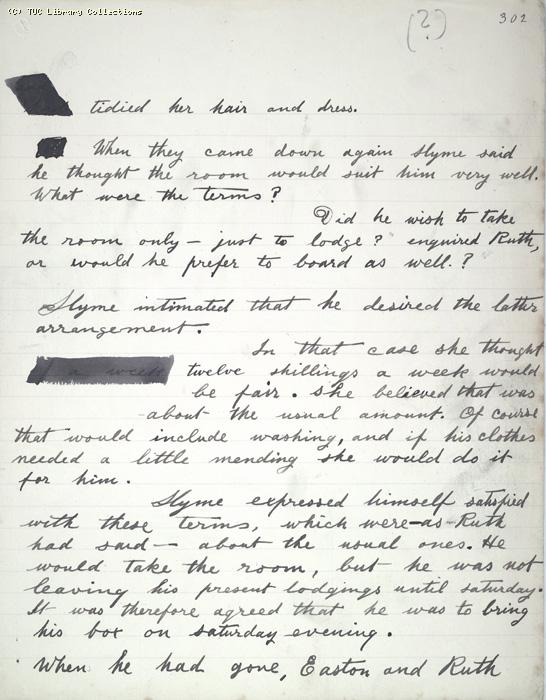 (C) TUC Library Collections
(?)
302
tidied her hair and dress.
When they came down again Slyme said
he thought the room would suit him very well.
What were the terms?
Did he wish to take
the room only — just to lodge? enquired Ruth,
or would he prefer to board as well.?
Slyme intimated that he desired the latter
arrangement.
In that case she thought
a week twelve shillings a week would
be fair. She believed that was
about the usual amount. Of course
that would include washing, and if his clothes
needed a little mending she would do it
for him.
Slyme expressed himself satisfied
with these terms, which were—as Ruth
had said — about the usual ones. He
would take the room, but he was not
leaving his present lodgings until saturday.
It was therefore agreed that he was to bring
his box on saturday evening.
When he had gone, Easton and Ruth